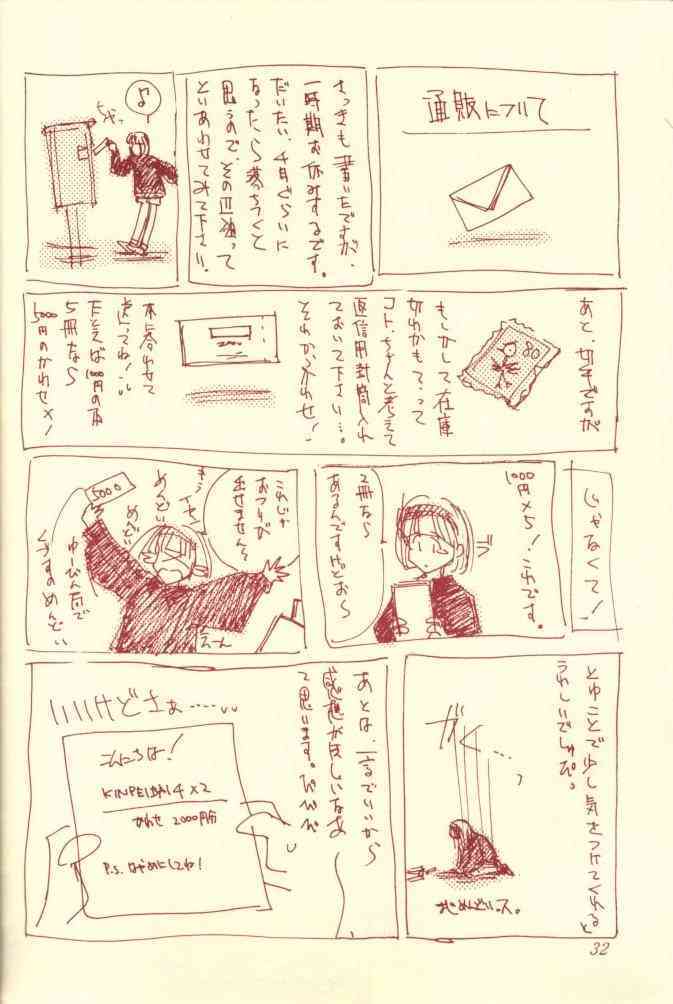 通販について
さっきも書いたですが、
一時期お休みするです。
だいたい、4月ぐらいに
なったら落ちつくと
思うので、その辺狙って
といあわせてみて下さい。
♪
あと、切手ですが
80
もしかして在庫
切れかも？って
コト、ちゃんと考えて
返信用封筒入れ
ておいて下さい…。
それから、かわせ！
本に合わせて
送ってね！
たとえば1000円の本
5冊なら
5000円のかわせ×！
じゃなくて！
1000円×5！これです。
2冊なら
あるんですけどお〜
これじゃ
おつりが
出せません〜
5000
めんどい
めんどい
ゆーびん局で
くずすのめんどい
とゆことで少し気をつけてくれると
うれしいでしゅぴ。
ガク…
あとは、一言でいいから
感想がほしいなあ
て思います。ぴぴぴ
いいけどさぁ……
こんにちは！
×2
かわせ 2000円分
P.S. はやめにしてね！
32